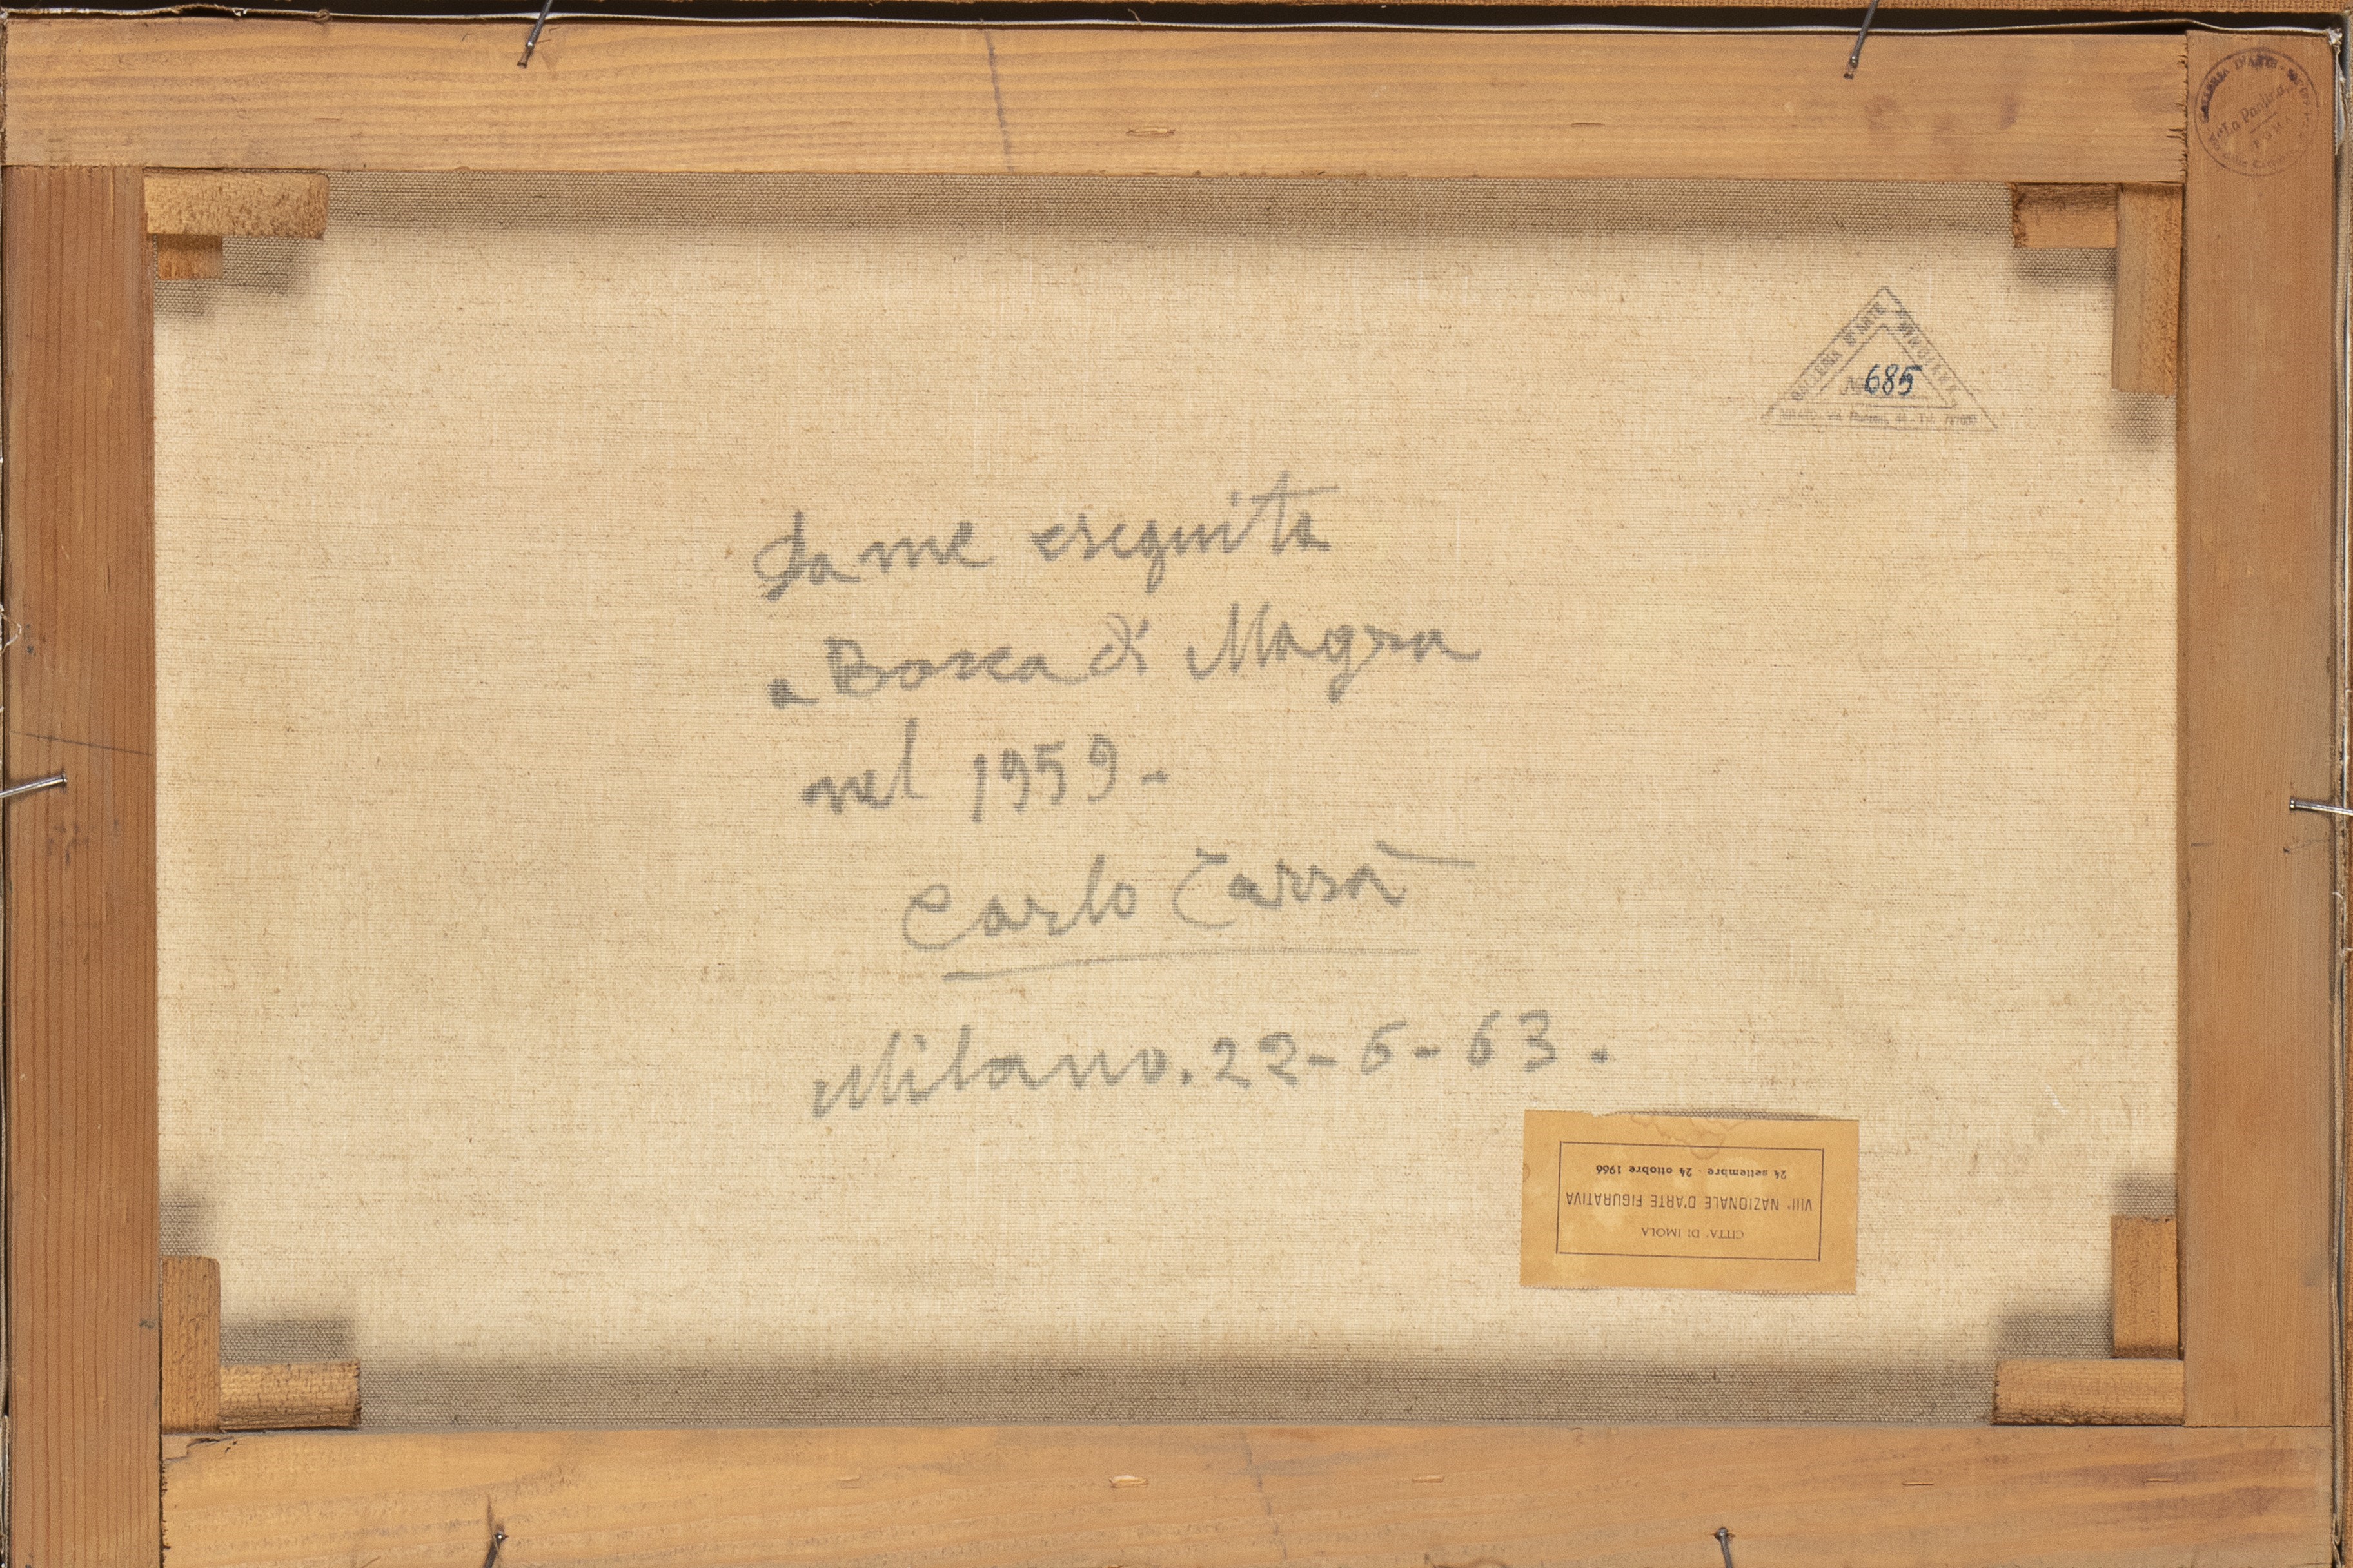 GALLERIA D'ARTE
"La Panchetta"
ROMA
GALLERIA D'ARTE
N. 685
da me eseguito
a Bocca di Magra
nel 1959-
Carlo Carrà
Milano. 22-6-63.
CITTA' DI IMOLA
VIIIª NAZIONALE D'ARTE FIGURATIVA
24 settembre - 24 ottobre 1966